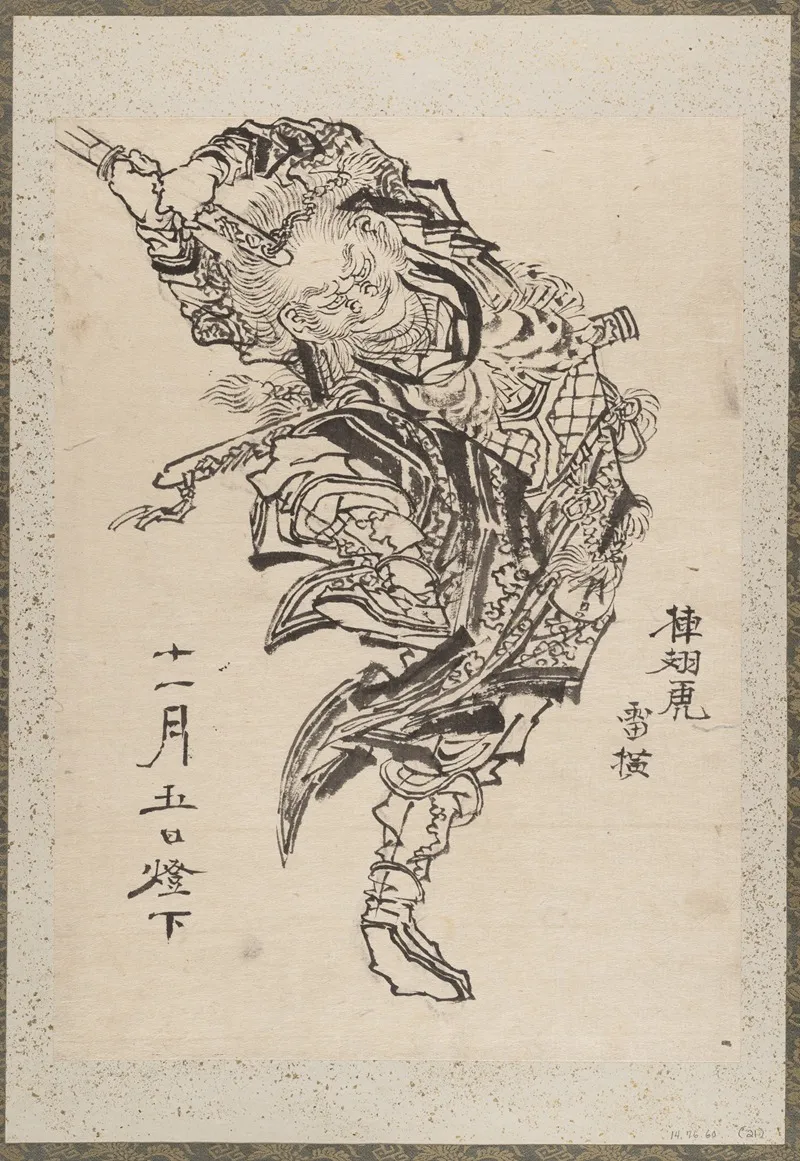 挿翅虎
雷横
十一月
五日燈
下
14.76.60